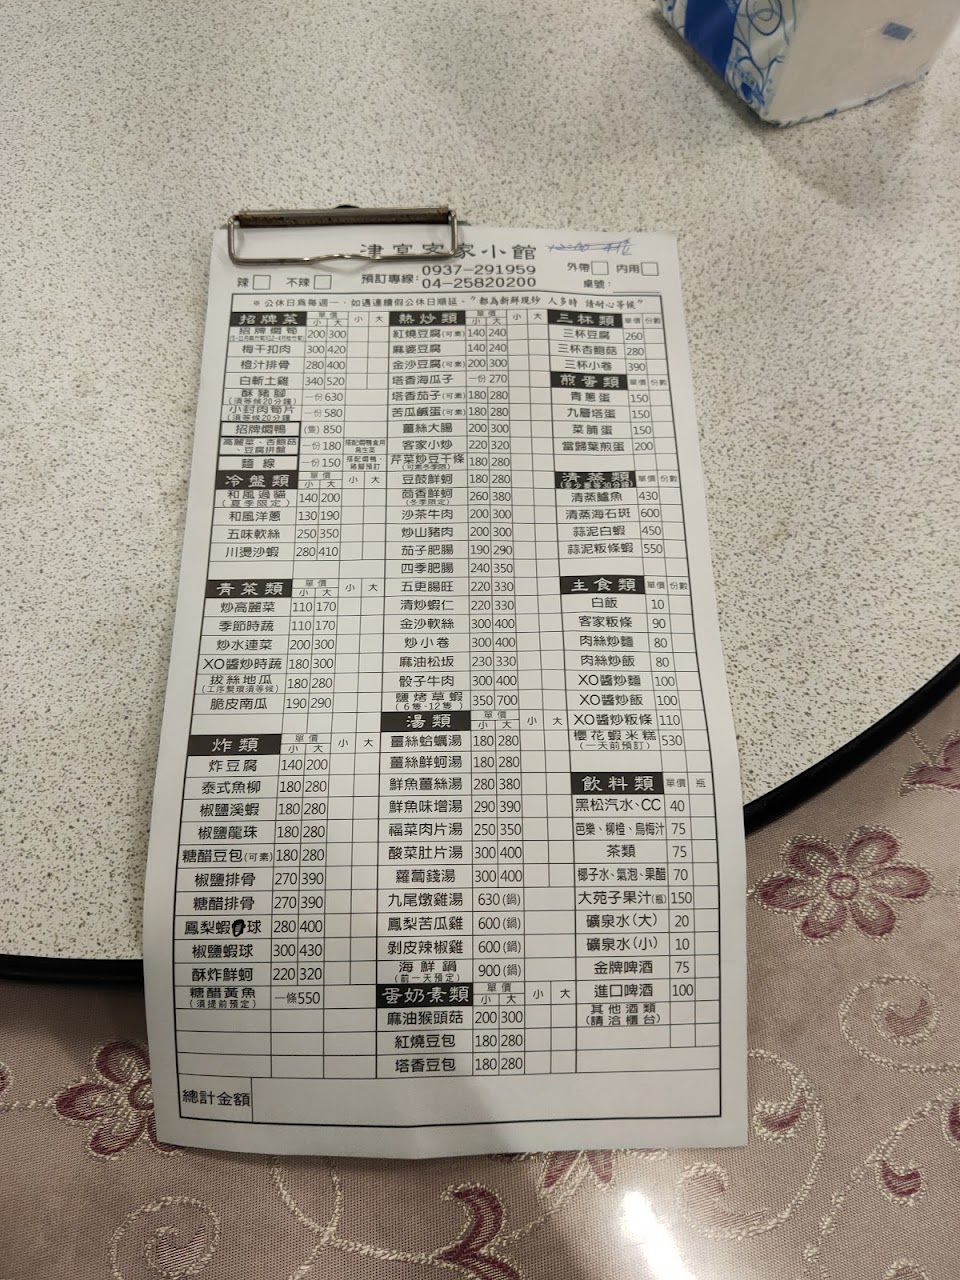 津宴客家小館
辣 不辣 預訂專線:0937-291959 外帶 內用
04-25820200 桌號:
※公休日為每週一,如遇連續假公休日順延,"都為新鮮現炒 人多時 請耐心等候"
招牌菜 單價 小 大 小 大
招牌燜筍 200 300
梅干扣肉 300 420
橙汁排骨 280 400
白斬土雞 340 520
酥豬腳 (須等候20分鐘) 一份630
小封肉筍片 (須等候20分鐘) 一份580
招牌燜鴨 (隻) 850
高麗菜、杏鮑菇、豆腐拼盤 一份180
麵線 一份150
冷盤類 單價 小 大 小 大
和風過貓 (夏季限定) 140 200
和風洋蔥 130 190
五味軟絲 250 350
川燙沙蝦 280 410
青菜類 單價 小 大 小 大
炒高麗菜 110 170
季節時蔬 110 170
炒水連菜 200 300
XO醬炒時蔬 180 300
拔絲地瓜 (工序繁瑣須等候) 180 280
脆皮南瓜 190 290
炸類 單價 小 大 小 大
炸豆腐 140 200
泰式魚柳 180 280
椒鹽溪蝦 180 280
椒鹽龍珠 180 280
糖醋豆包(可素) 180 280
椒鹽排骨 270 390
糖醋排骨 270 390
鳳梨蝦球 280 400
椒鹽蝦球 300 430
酥炸鮮蚵 220 320
糖醋黃魚 (須提前預定) 一條550
總計金額
熱炒類 單價 小 大 小 大
紅燒豆腐(可素) 140 240
麻婆豆腐 140 240
金沙豆腐(可素) 200 300
塔香海瓜子 一份270
塔香茄子(可素) 180 280
苦瓜鹹蛋(可素) 180 280
薑絲大腸 200 300
客家小炒 220 320
芹菜炒豆干條 (可素冬季限) 180 280
豆鼓鮮蚵 180 280
茴香鮮蚵 (冬季限定) 260 380
沙茶牛肉 200 300
炒山豬肉 200 300
茄子肥腸 190 290
四季肥腸 240 350
五更腸旺 220 330
清炒蝦仁 220 330
金沙軟絲 300 400
炒小卷 300 400
麻油松坂 230 330
骰子牛肉 300 400
鹽烤草蝦 (6隻-12隻) 350 700
湯類 單價 小 大 小 大
薑絲蛤蠣湯 180 280
薑絲鮮蚵湯 180 280
鮮魚薑絲湯 280 380
鮮魚味增湯 290 390
福菜肉片湯 250 350
酸菜肚片湯 300 400
蘿蔔錢湯 300 400
九尾燉雞湯 630 (鍋)
鳳梨苦瓜雞 600 (鍋)
剝皮辣椒雞 600 (鍋)
海鮮鍋 (前一天預定) 900 (鍋)
蛋奶素類 單價 小 大 小 大
麻油猴頭菇 200 300
紅燒豆包 180 280
塔香豆包 180 280
三杯類 單價 份數
三杯豆腐 260
三杯杏鮑菇 280
三杯小卷 390
煎蛋類 單價 份數
青蔥蛋 150
九層塔蛋 150
菜脯蛋 150
當歸葉煎蛋 200
清蒸類 單價 份數
清蒸鱸魚 430
清蒸海石斑 600
蒜泥白蝦 450
蒜泥粄條蝦 550
主食類 單價 份數
白飯 10
客家粄條 90
肉絲炒麵 80
肉絲炒飯 80
XO醬炒麵 100
XO醬炒飯 100
XO醬炒粄條 110
櫻花蝦米糕 (一天前預訂) 530
飲料類 單價 瓶
黑松汽水、CC 40
芭樂、柳橙、烏梅汁 75
茶類 75
椰子水、氣泡、果醋 70
大苑子果汁(瓶) 150
礦泉水(大) 20
礦泉水(小) 10
金牌啤酒 75
進口啤酒 100
其他酒類 (請洽櫃台)